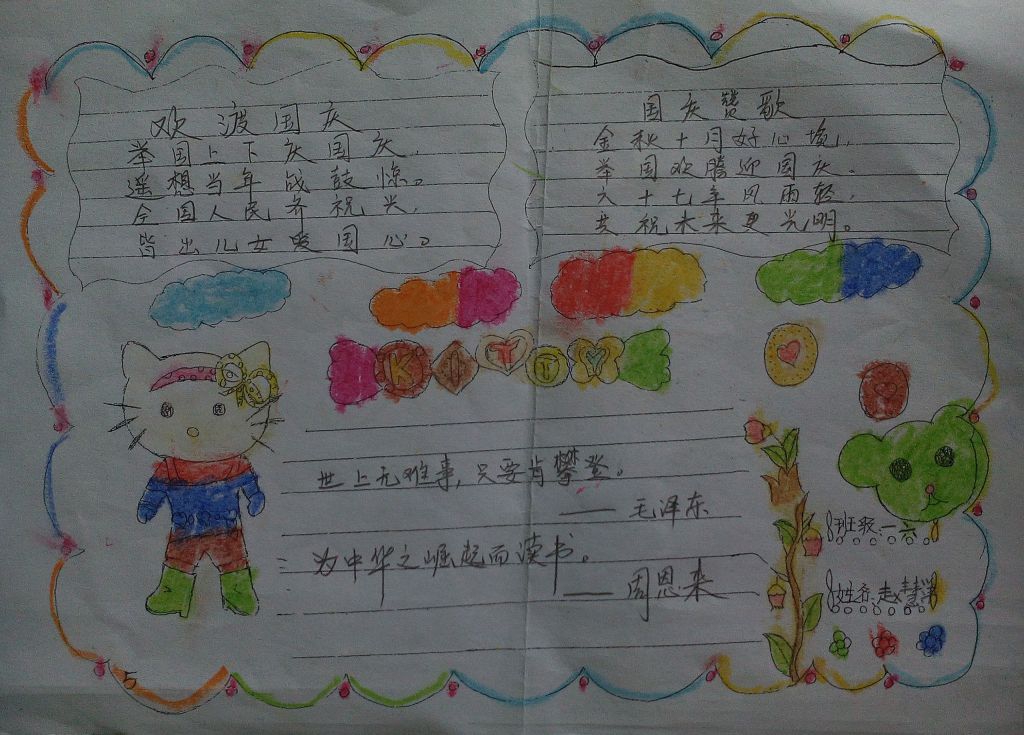 欢渡国庆
举国上下庆国庆,
遥想当年战鼓惊。
全国人民齐祝兴,
皆出儿女爱国心。
国庆赞歌
金秋十月好心境,
举国欢腾迎国庆.
六十七年风雨轻,
共祝未来更光明。
KITTY
世上无难事,只要肯攀登。
——毛泽东
为中华之崛起而读书。
——周恩来
班级:一六
姓名:赵
5